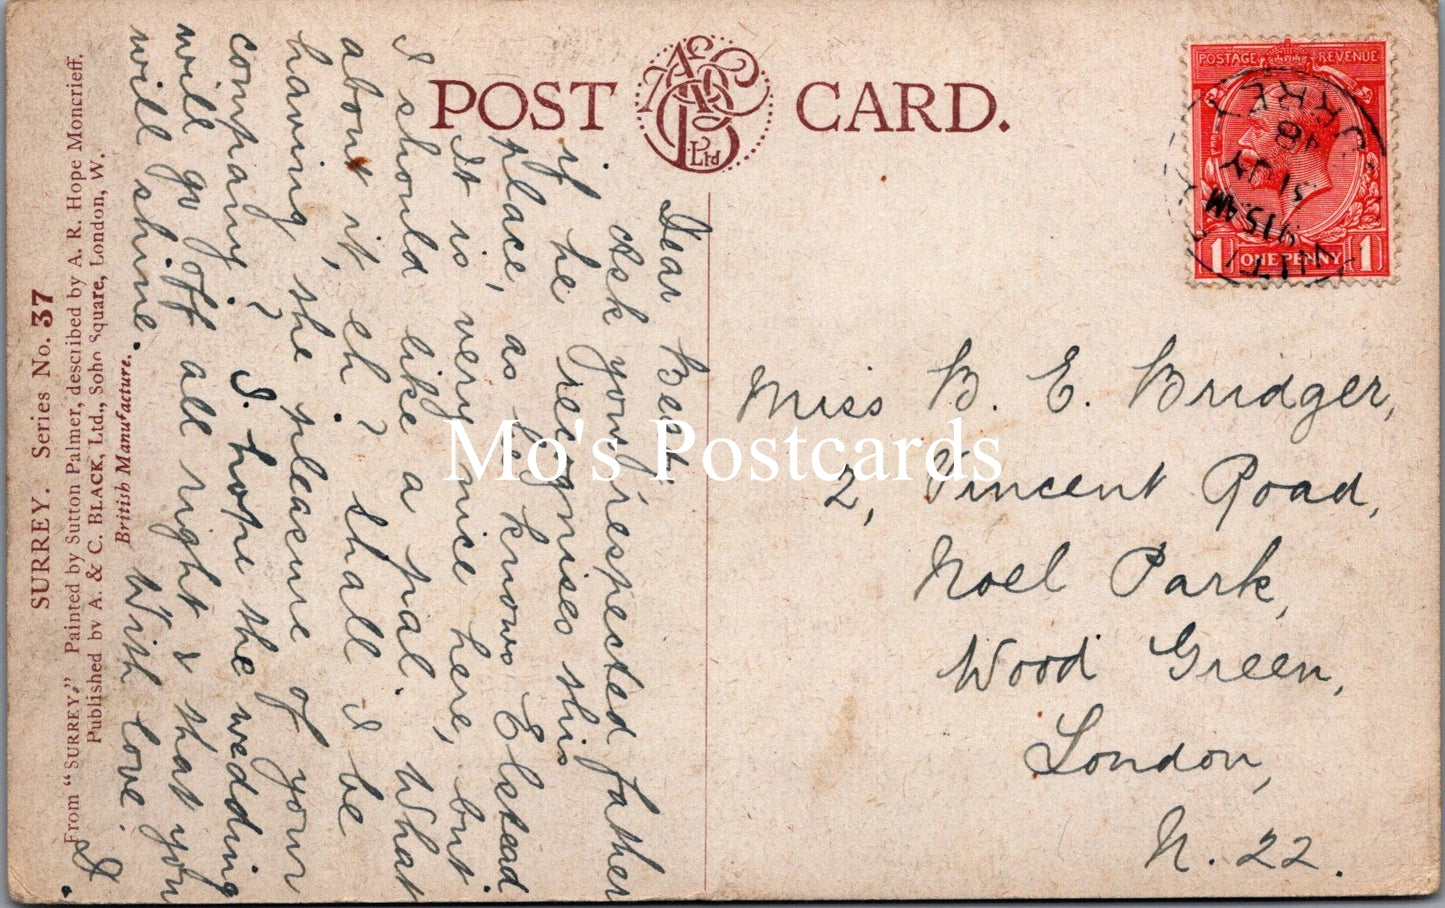 POST CARD.
A&CB Ltd
POSTAGE REVENUE
1 ONE PENNY 1
9.15 AM
31 JY
18
SURREY. Series No. 37
From "SURREY," Painted by Sutton Palmer, described by A. R. Hope Moncrieff.
Published by A. & C. BLACK, Ltd., Soho Square, London, W.
British Manufacture.
Dear Bert,
Ask your respected father
if he recognises this
place, as he knows Elstead
It is very nice here, but
I should like a pal. What
about it, eh? Shall I be
having the pleasure of your
company? I hope the wedding
will go off all right & that you
will shine. With love.
I.
Miss B. E. Bridger,
2, Vincent Road,
Noel Park,
Wood Green,
London,
N. 22.
Mo's Postcards